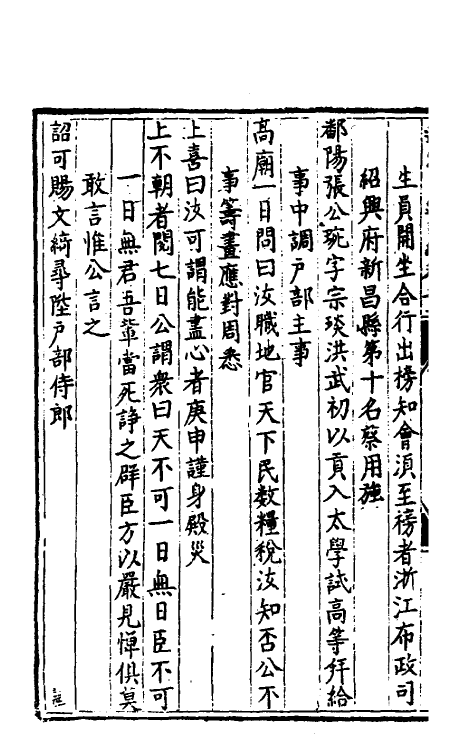 生員開坐合行出榜知會湏至榜者浙江布政司
紹興府新昌縣第十名蔡用強
鄱陽張公琬字宗琰洪武初以貢入太學試高等拜給
事中調戶部主事
高廟一日問曰汝職地官天下民数糧稅汝知否公不
事籌畫應對周悉
上喜曰汝可謂能盡心者庚申謹身殿災
上不朝者閱七日公謂衆曰天不可一日無日臣不可
一日無君吾輩當死諍之群臣方以嚴見憚俱莫
敢言惟公言之
詔可賜文綺尋陞戶部侍郎